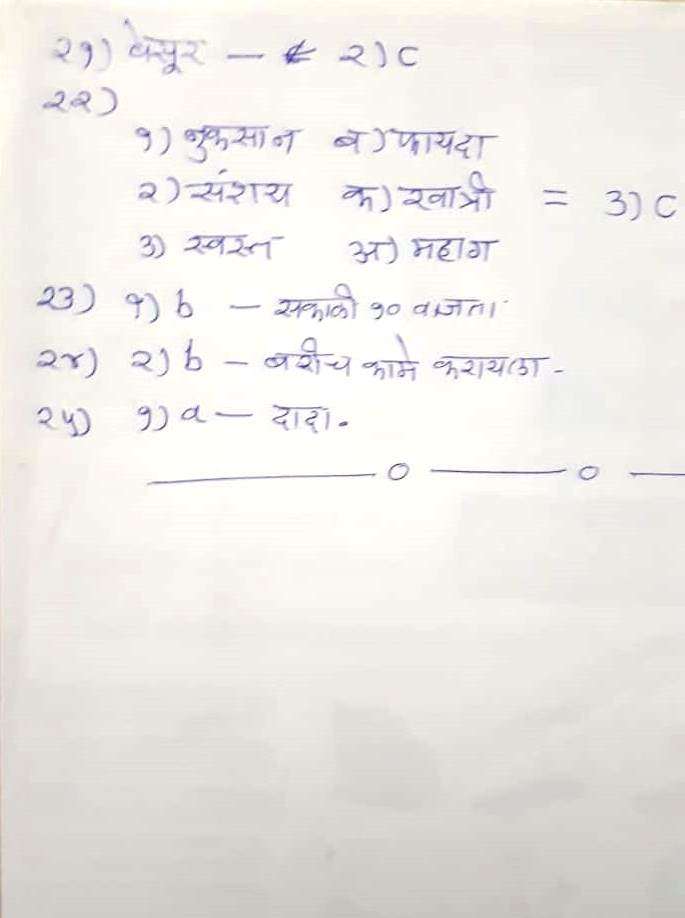 २१) बेसूर — २) c
२२)
१) नुकसान ब) फायदा
२) संशय क) खात्री = 3) c
3) स्वस्त अ) महाग
२3) १) b — सकाळी १० वाजता.
२४) २) b — बरीच कामे करायला -
२५) १) a — दादा.